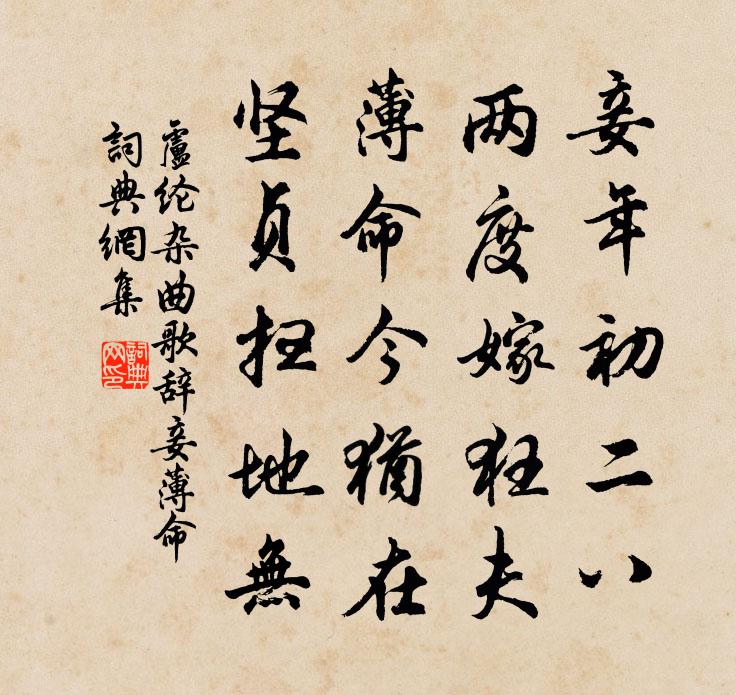 妾年初二八
两度嫁狂夫
薄命今犹在
坚贞扫地無
盧纶杂曲歌辞妾薄命
詞典網集
詞典网印